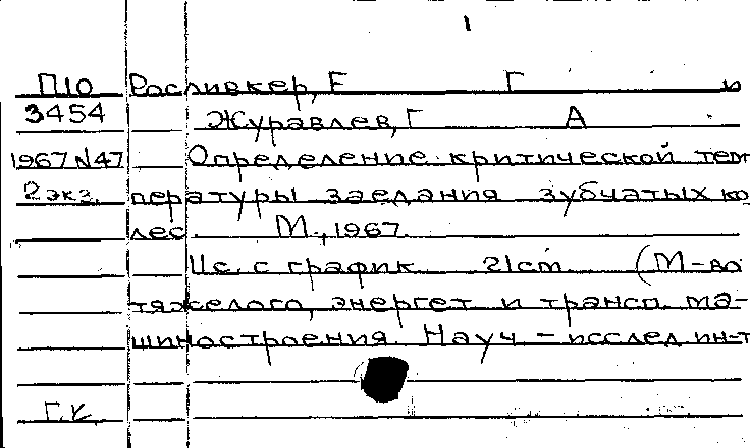 1
П10 Росливкер, Е Г и
3454 Журавлев, Г А
1967 N47 Определение критической тем
2 экз. пературы заедания зубчатых ко
лес. М., 1967.
11с. с график 21cm (М-во
тяжелого, энергет и трансп. ма-
шиностроения. Науч - исслед ин-т
Г.К.